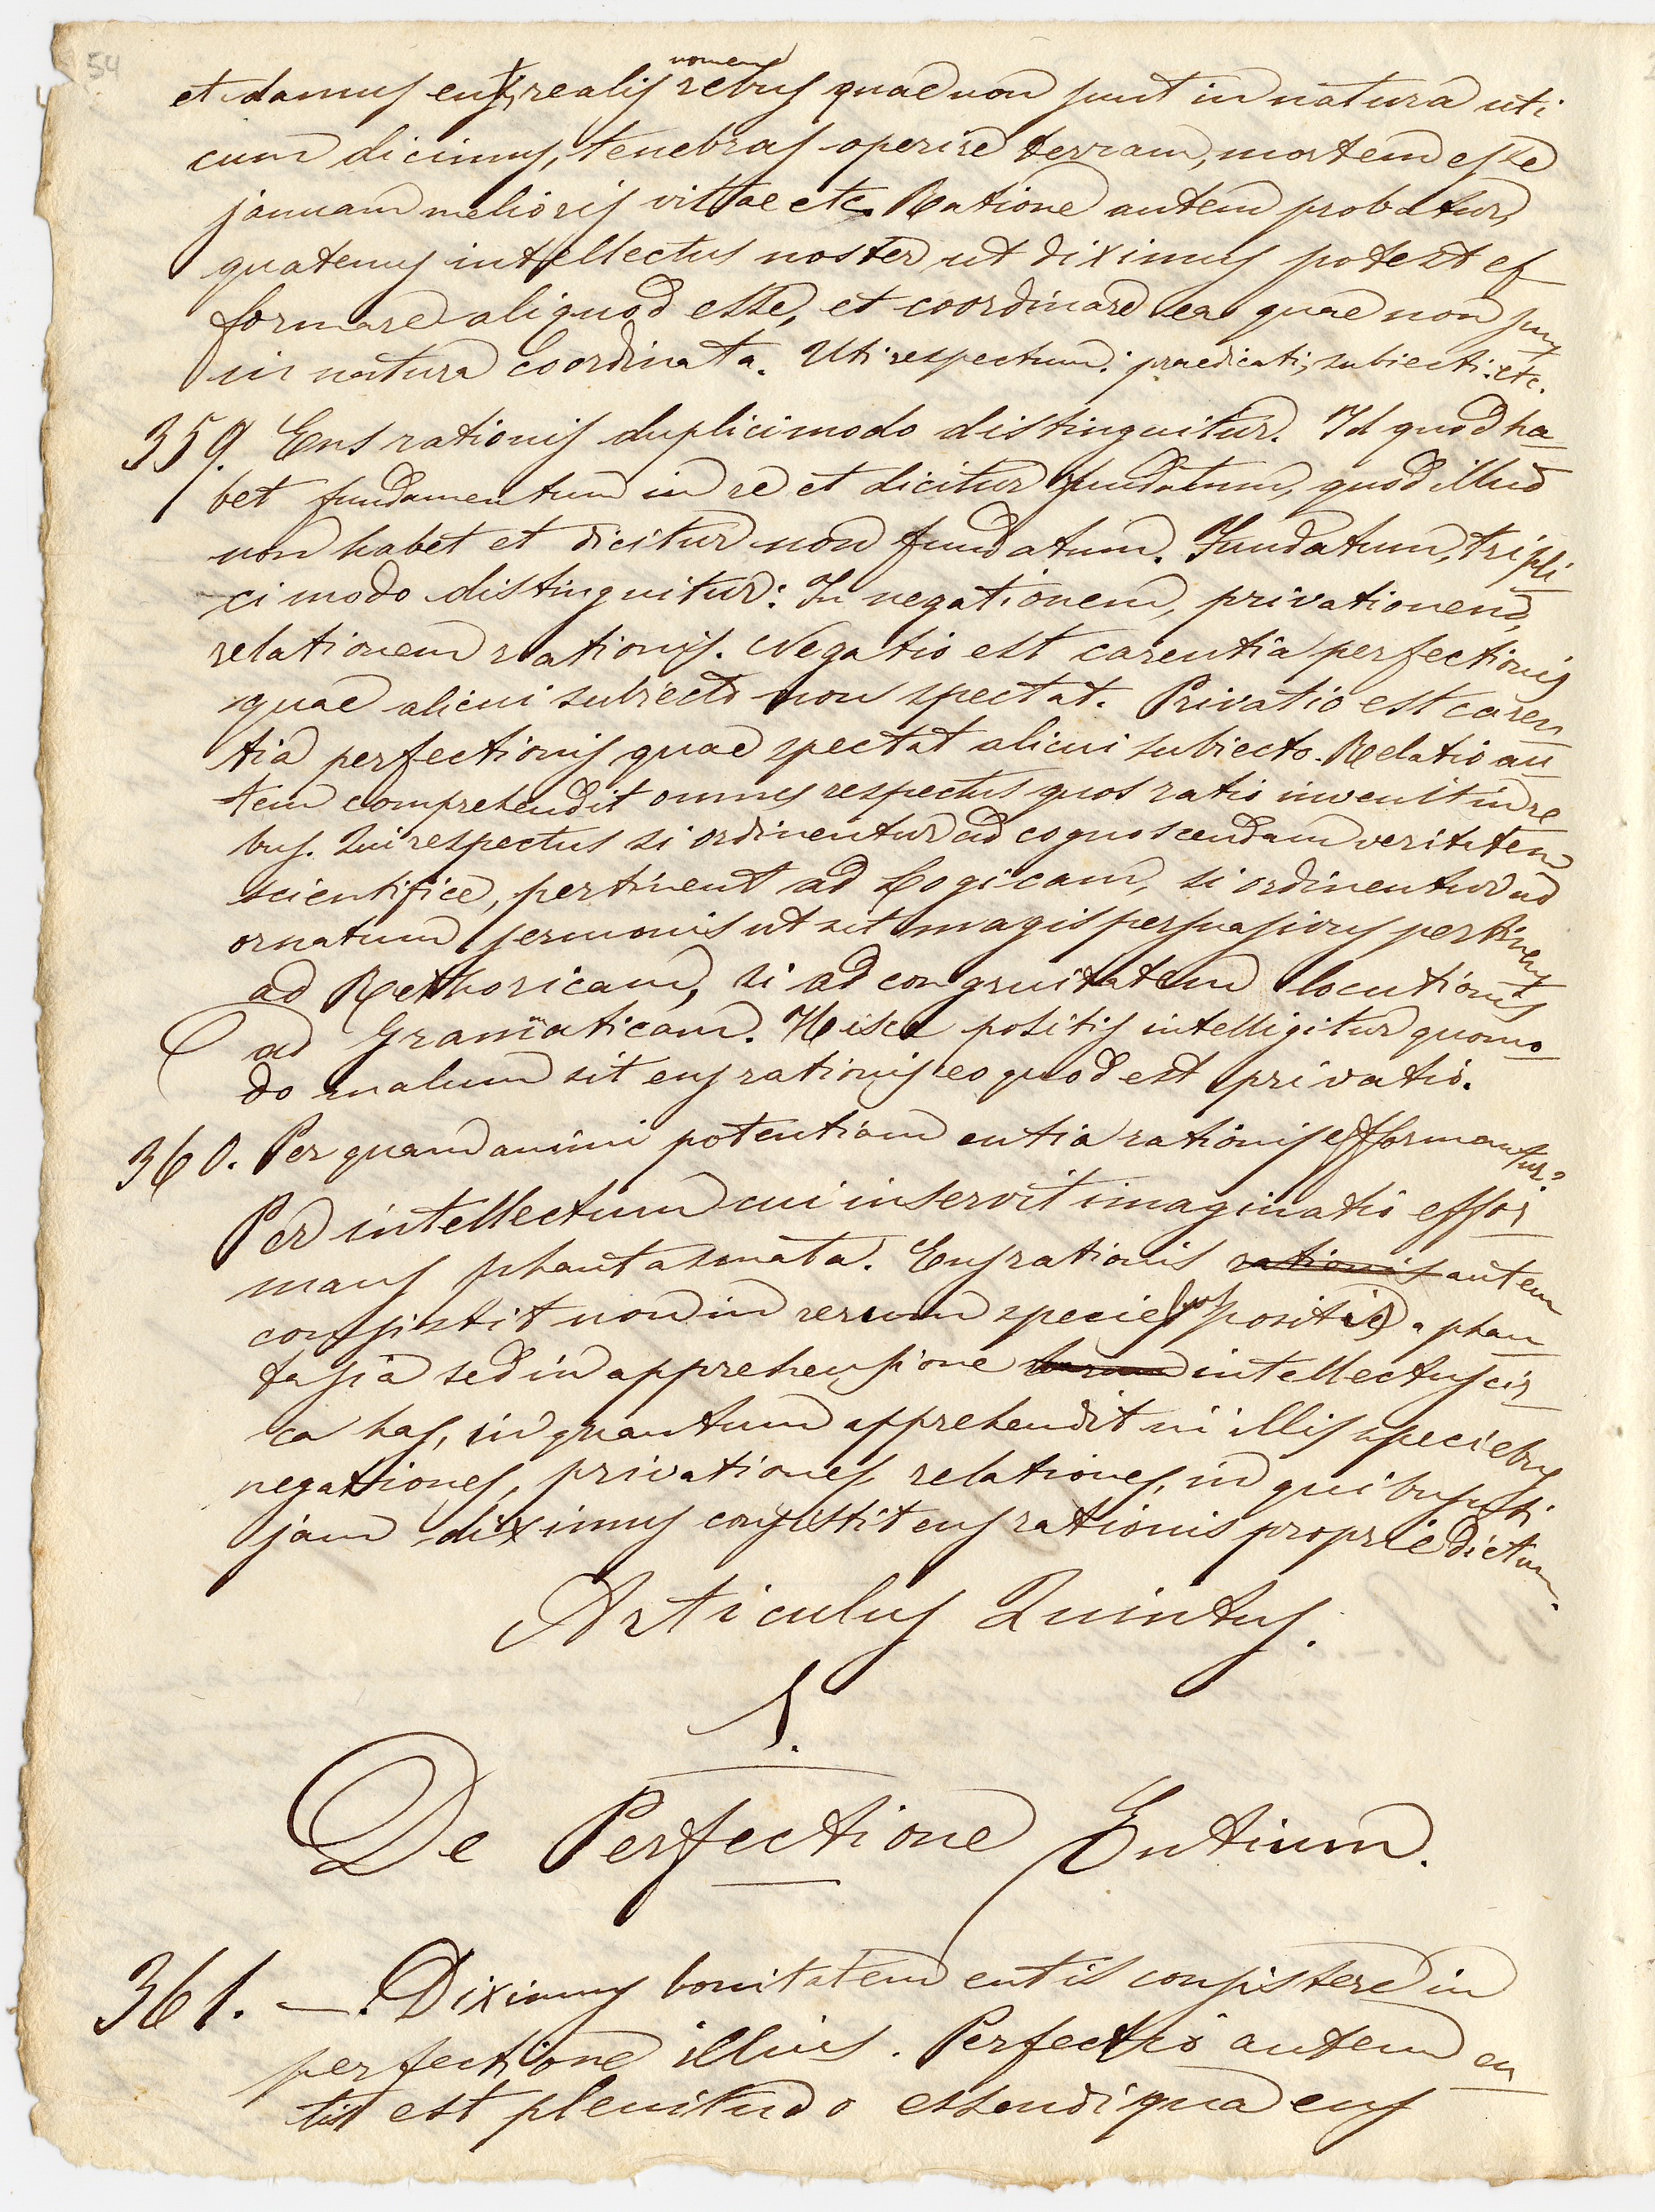 54
nomen
et damus entis realis rebus quae non sunt in natura uti
cum dicimus, tenebras operire terram, mortem esse
januam melioris vitae etc. Ratione autem probatur,
quatenus intellectus noster ut diximus potest ef
formare aliquod esse, et coordinare ea quae non sunt
in natura coordinata. Uti respectum: praedicati, subiecti: etc.
359. Ens rationis duplici modo distinguitur. Id quod ha
bet fundamentum in re et dicitur fundatum, quod illud
non habet et dicitur non fundatum. Fundatum, tripli
ci modo distinguitur: In negationem, privationem,
relationem rationis. Negatio est carentia perfectionis
quae alicui subiecto non spectat. Privatio est caren
tia perfectionis quae spectat alicui subiecto. Relatio au
tem comprehendit omnes respectus quos ratio invenit in re
bus. Qui respectus si ordinentur ad cognoscendam veritatem
scientifice, pertinent ad Logicam, si ordinentur ad
ornatum sermonis ut sit magis persuasions pertinent
ad Rethoricam, si ad congruitatem locutionis
ad Gramaticam. Hisce positis intelligitur quomo
do malum sit ens rationis eo quod est privatio.
360. Per quam animi potentiam entia rationis efformantur?
Per intellectum cui inservit imaginatio effor
mans phantasmata. Ens rationis rationis autem
consistit non in rerum speciebus positis a phan
tasia sed in apprehensione intellectus cir
ca has, in quantum apprehendit in illis speciebus
negationes, privationes, relationes, in quibus uti
jam diximus consistit ens rationis proprie dictum.
Articulus Quintus.
§.
De Perfectione Entium.
361. —. Diximus bonitatem entis consistere in
perfectione illius. Perfectio autem en
tis est plenitudo essendi qua ens